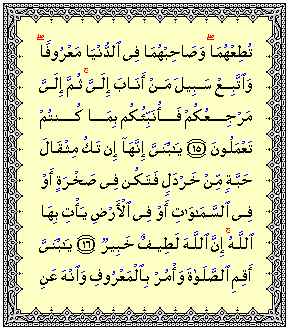 تُطِعْهُمَاۖ وَصَاحِبْهُمَا فِى ٱلدُّنْيَا مَعْرُوفًاۖ
وَٱتَّبِعْ سَبِيلَ مَنْ أَنَابَ إِلَىَّۚ ثُمَّ إِلَىَّ
مَرْجِعُكُمْ فَأُنَبِّئُكُم بِمَا كُنتُمْ
تَعْمَلُونَ ١٥ يَٰبُنَىَّ إِنَّهَآ إِن تَكُ مِثْقَالَ
حَبَّةٍ مِّنْ خَرْدَلٍ فَتَكُن فِى صَخْرَةٍ أَوْ
فِى ٱلسَّمَٰوَٰتِ أَوْ فِى ٱلْأَرْضِ يَأْتِ بِهَا
ٱللَّهُۚ إِنَّ ٱللَّهَ لَطِيفٌ خَبِيرٌ ١٦ يَٰبُنَىَّ
أَقِمِ ٱلصَّلَوٰةَ وَأْمُرْ بِٱلْمَعْرُوفِ وَٱنْهَ عَنِ